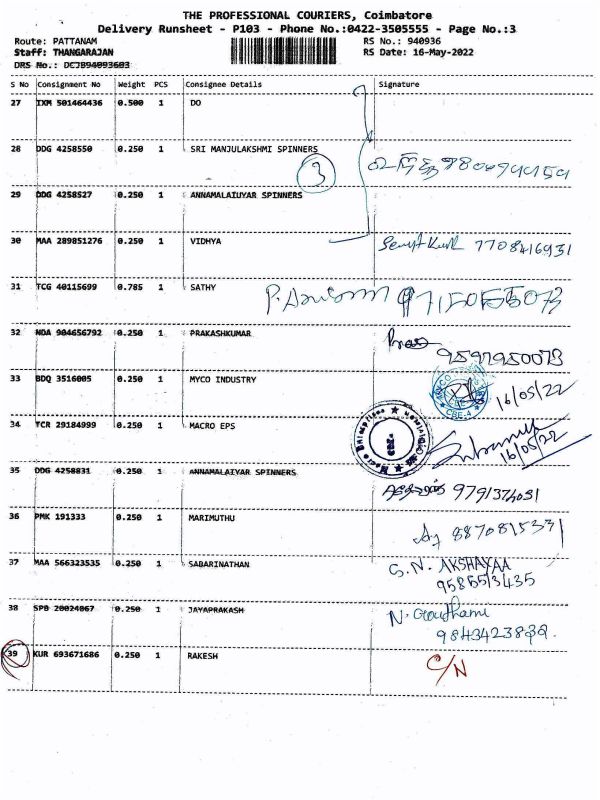 THE PROFESSIONAL COURIERS, Coimbatore
Delivery Runsheet - P103 - Phone No.:0422-3505555 - Page No.:3
Route: PATTANAM RS No.: 940936
Staff: THANGARAJAN RS Date: 16-May-2022
DRS No.: DCJB94093603
S No Consignment No Weight PCS Consignee Details Signature
27 IXM 501464436 0.500 1 DO
28 DDG 4258550 0.250 1 SRI MANJULAKSHMI SPINNERS
3
29 DDG 4258527 0.250 1 ANNAMALAIUYAR SPINNERS
30 MAA 289851276 0.250 1 VIDHYA 7708416931
31 TCG 40115699 0.785 1 SATHY
32 NDA 904656792 0.250 1 PRAKASHKUMAR
9597950073
33 BDQ 3516005 0.250 1 MYCO INDUSTRY MYCO CBE-4 16/05/22
34 TCR 29184999 0.250 1 MACRO EPS
16/05/22
35 DDG 4258831 0.250 1 ANNAMALAIYAR SPINNERS 9791374031
36 PMK 191333 0.250 1 MARIMUTHU 8870815331
37 MAA 566323535 0.250 1 SABARINATHAN G.N. AKSHAYAA
9585513435
38 SPB 20024067 0.250 1 JAYAPRAKASH N. Gouthami
9843423832
39 KUR 693671686 0.250 1 RAKESH C/N